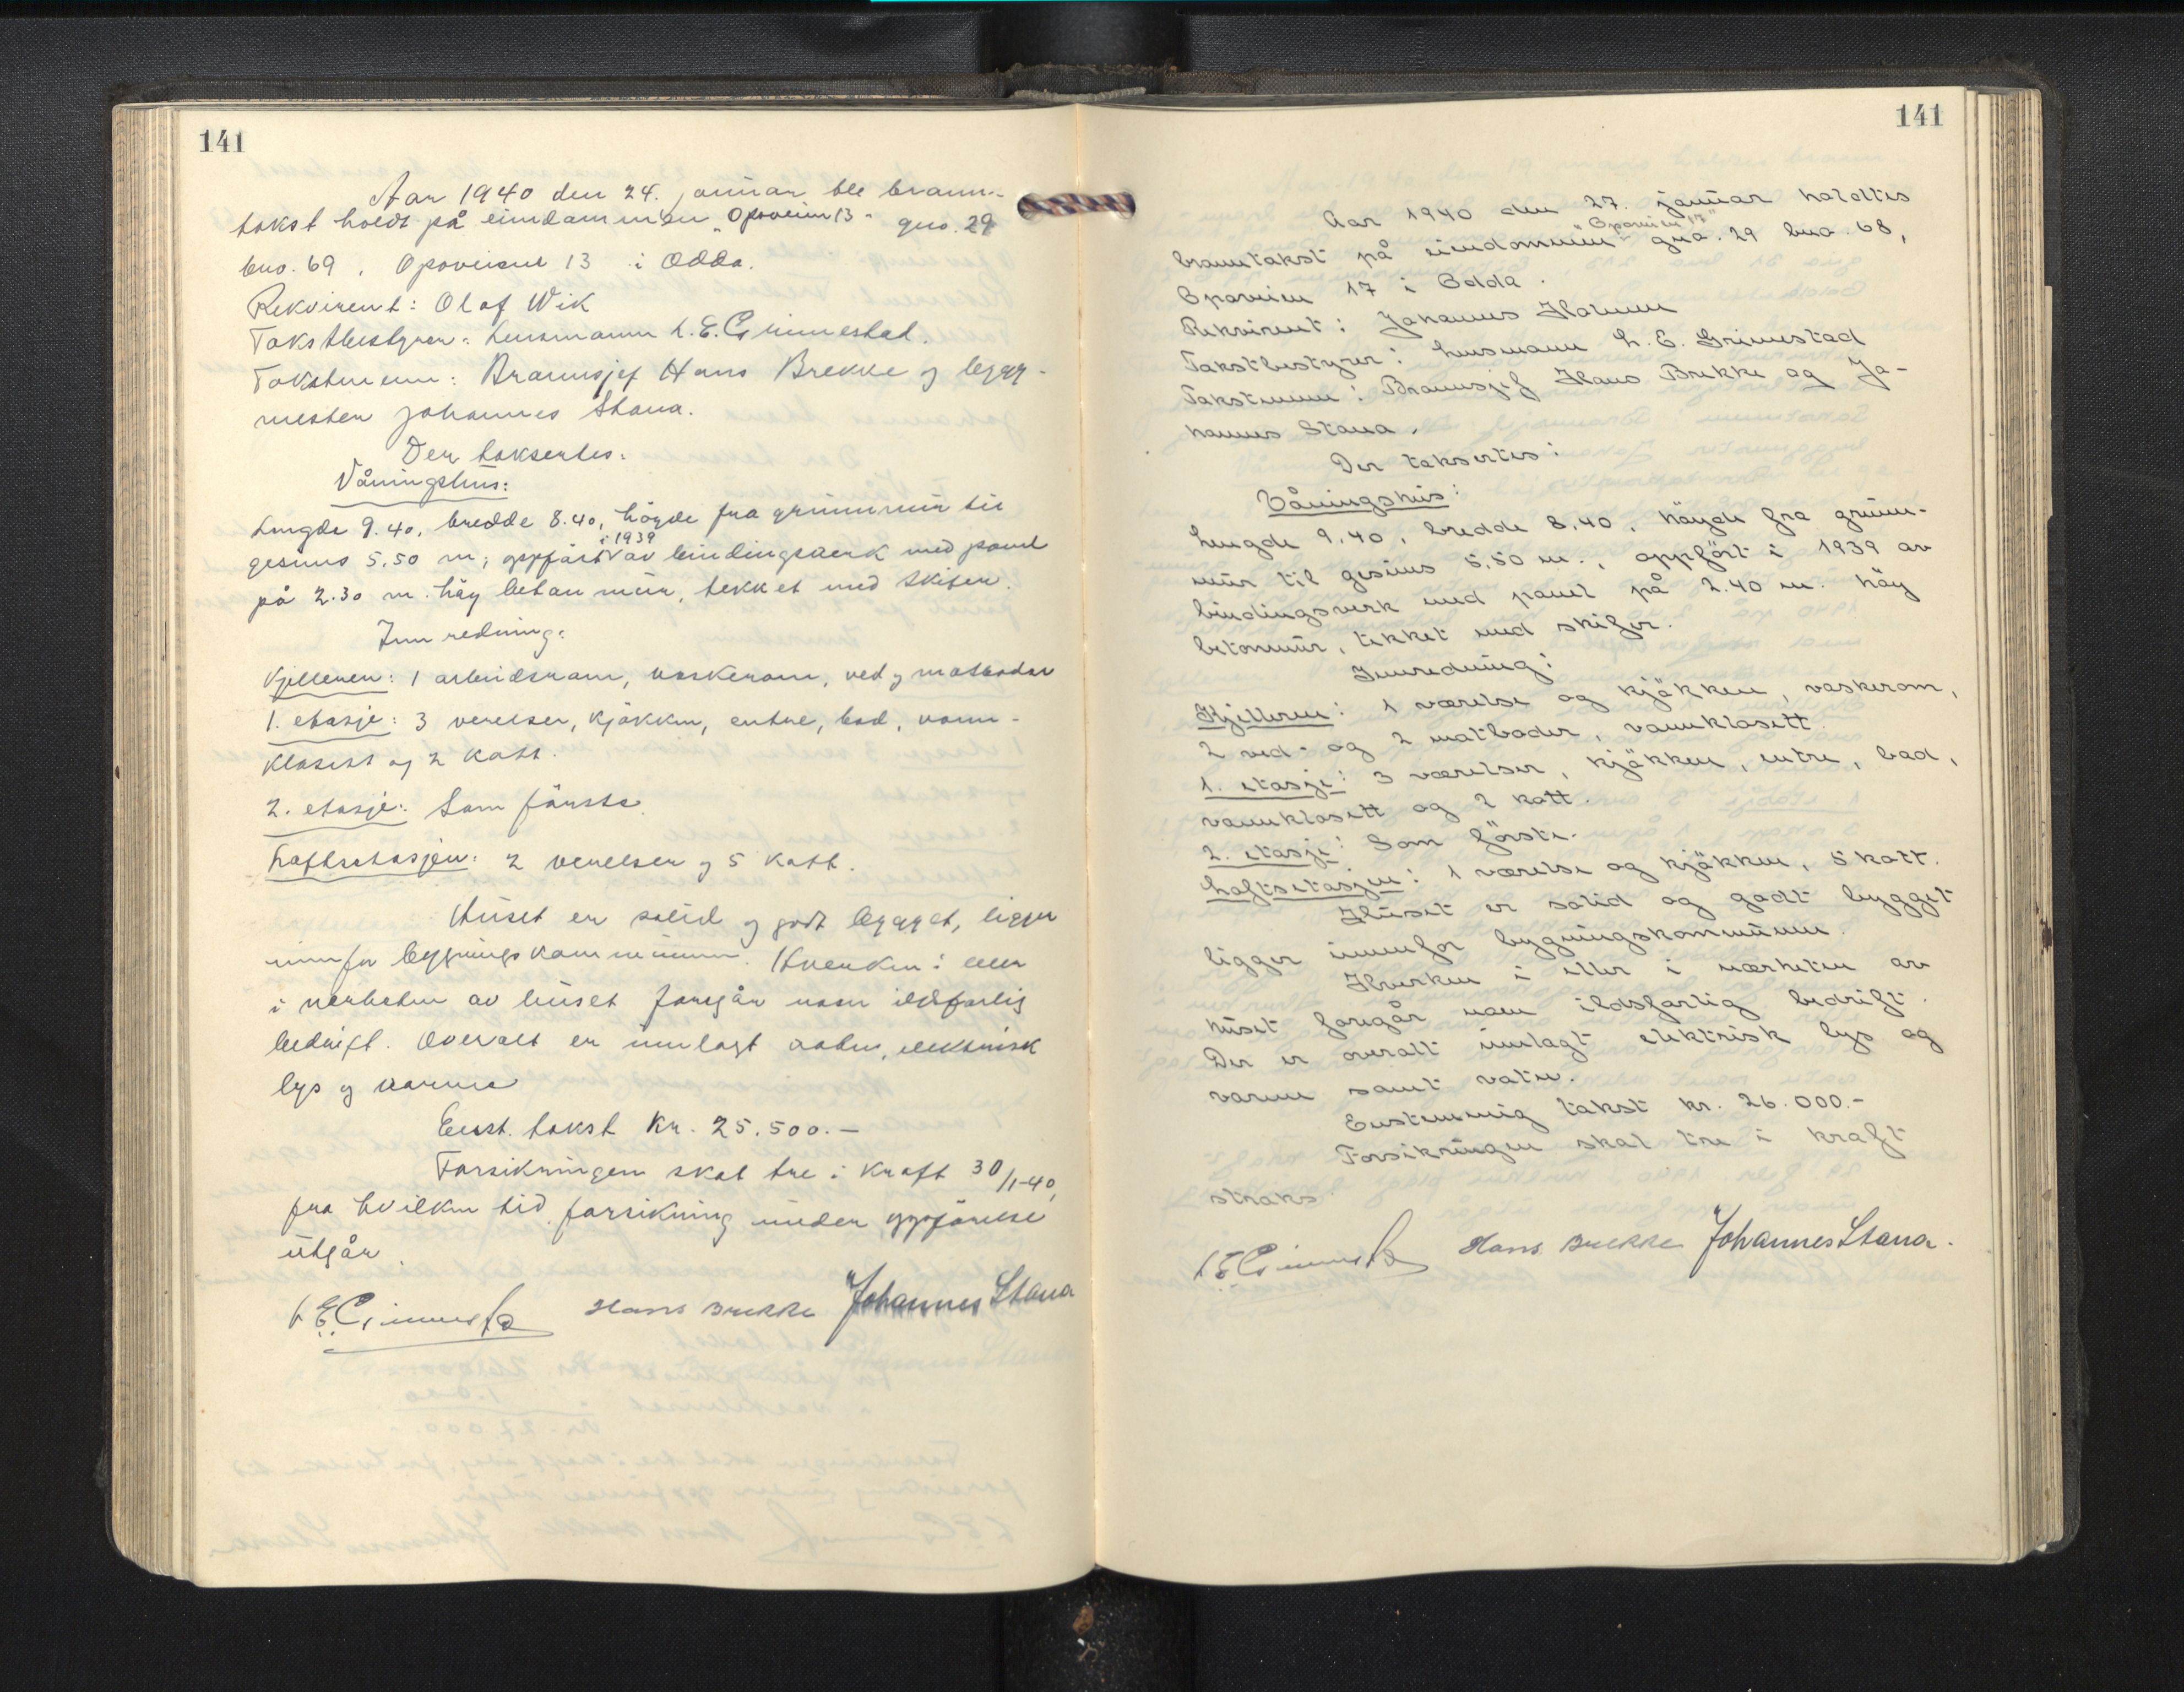 141
Aar 1940 den 24. januar ble brann-
takst holdt på eiendommen "Opoveien 13" gno. 29
bno. 69, Opoveien 13 i Odda.
Rekvirent: Olaf Wik
Takstbestyrer: Lensmann L. E. Grimestad.
Takstmenn: Brannsjef Hans Brekke og bygg-
mester Johannes Stana.
Der taksertes:
Våningshus:
Lengde 9.40, bredde 8.40, höyde fra grunnmur til
gesims 5.50 m, oppfört i 1939 av bindingsverk med panel
på 2.30 m. höy betonmur, tekket med skifer.
Innredning:
Kjelleren: 1 arbeidsrom, vaskerom, ved og matboder
1. etasje: 3 verelser, kjökken, entre, bad, vann-
klosett og 2 kott.
2. etasje: Som förste.
Loftsetasjen: 2 verelser og 5 kott.
Huset er solid og godt bygget, ligger
innfor bygningskommunen. Hverken i eller
i nerheten av huset foregår noen ildsfarlig
bedrift. Overalt er innlagt vatn, elektrisk
lys og varme
Enst. takst kr. 25.500.-
Forsikringen skal tre i kraft 30/1-40,
fra hvilken tid forsikring under oppförelse
utgår.
L E Grimestad Hans Brekke Johannes Stana
141
Aar 1940 den 27. januar holdtes
branntakst på eiendommen "Opoveien 17" gno. 29 bno. 68,
Opoveien 17 i Odda.
Rekvirent: Johannes Holmen
Takstbestyrer: Lensmann L. E. Grimestad
Takstmenn: Brannsjef Hans Brekke og Jo-
hannes Stana.
Der taksertes:
Våningshus:
Lengde 9,40, bredde 8,40, höyde fra grunn-
mur til gesims 5,50 m., oppfört i 1939 av
bindingsverk med panel på 2.40 m. höy
betonmur, tekket med skifer.
Innredning:
Kjelleren: 1 værelse og kjökken, vaskerom,
2 ved- og 2 matboder, vannklosett.
1. etasje: 3 værelser, kjökken, entre, bad,
vannklosett og 2 kott.
2. etasje: Som förste.
Loftsetasjen: 1 værelse og kjökken, 5 kott.
Huset er solid og godt bygget
ligger innenfor bygningskommunen.
Hverken i eller i nærheten av
huset foregår noen ildsfarlig bedrift.
Der er overalt innlagt elektrisk lys og
varme samt vatn.
Enstemmig takst kr. 26.000.-
Forsikringen skal tre i kraft
straks.
L E Grimestad Hans Brekke Johannes Stana.